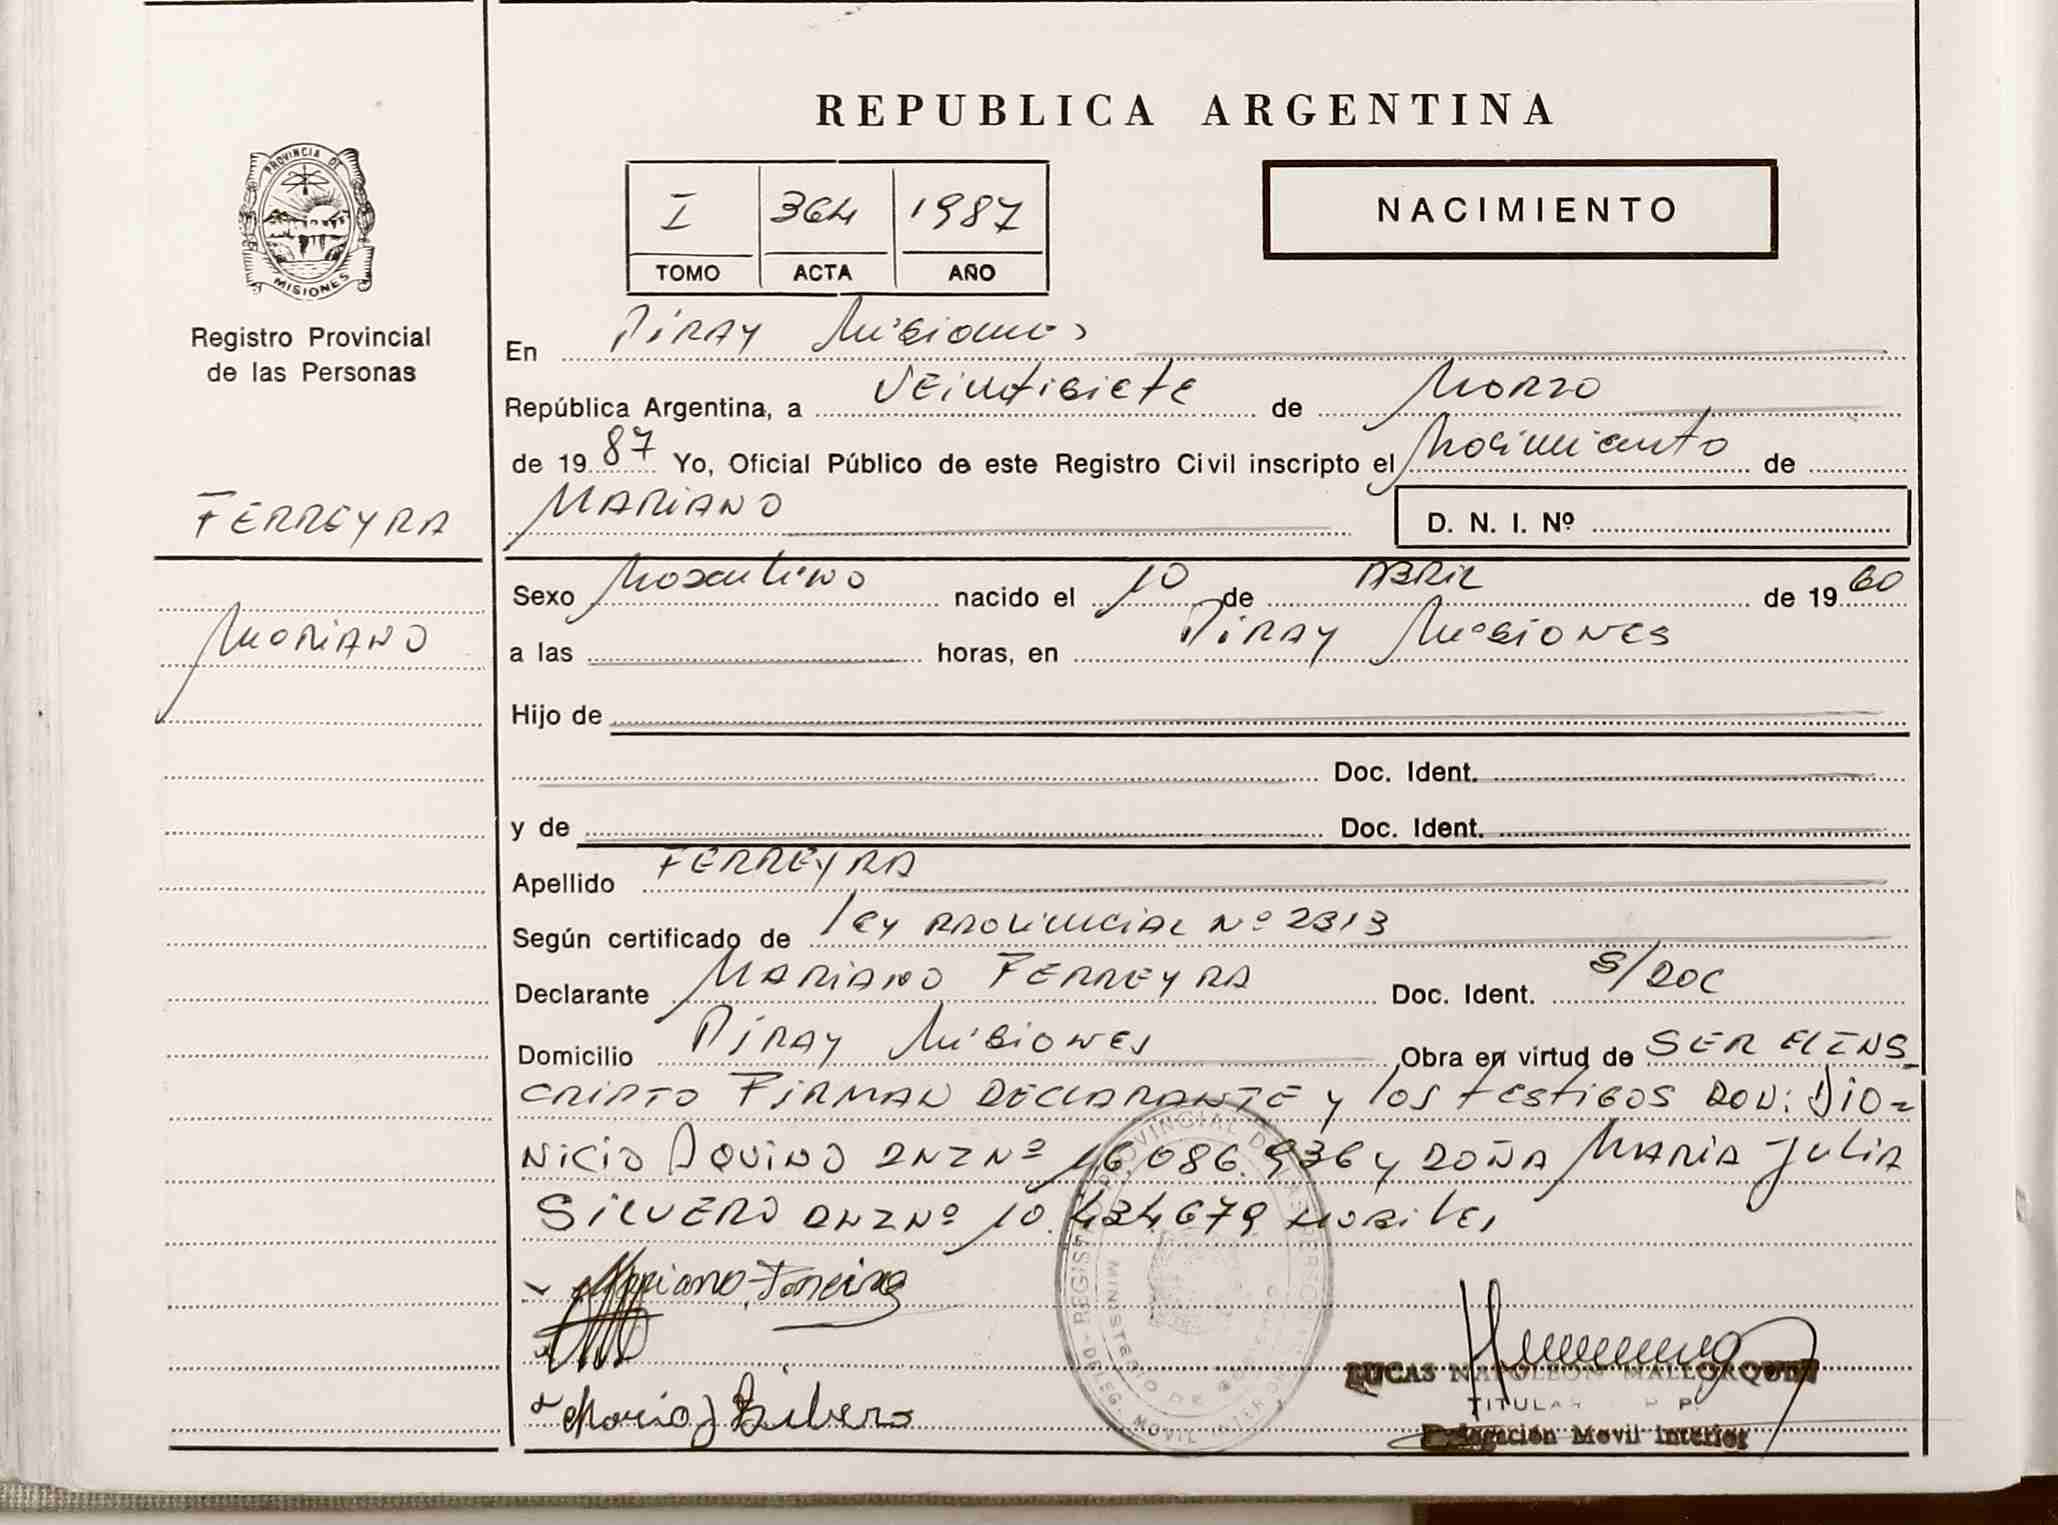 REPUBLICA ARGENTINA
PROVINCIA DE
MISIONES
Registro Provincial
de las Personas
I 364 1987
TOMO ACTA AÑO
NACIMIENTO
En Piray Misiones
República Argentina, a Veintisiete de Marzo
de 1987 Yo, Oficial Público de este Registro Civil inscripto el Nacimiento de
FERREYRA
MARIANO
D. N. I. Nº
MARIANO
Sexo Masculino nacido el 10 de ABRIL de 1960
a las horas, en Piray Misiones
Hijo de
Doc. Ident.
y de Doc. Ident.
Apellido FERREYRA
Según certificado de ley provincial Nº 2313
Declarante MARIANO FERREYRA Doc. Ident. S/DOC
Domicilio Piray Misiones Obra en virtud de SER EL INS
CRIPTO FIRMAN DECLARANTE y los testigos DON: DIO=
NICIO AQUINO DNI Nº 16.086.936 y DOÑA MARIA JULIA
SILVERO DNI Nº 10.434679 habiles
Mariano Ferreira
Maria J Silvero
LUCAS NAPOLEON MALLORQUIN
TITULAR
Delegación Movil Interior
REGISTRO PROVINCIAL DE LAS PERSONAS
MINISTERIO DE GOBIERNO
DELEG. MOVIL INTERIOR